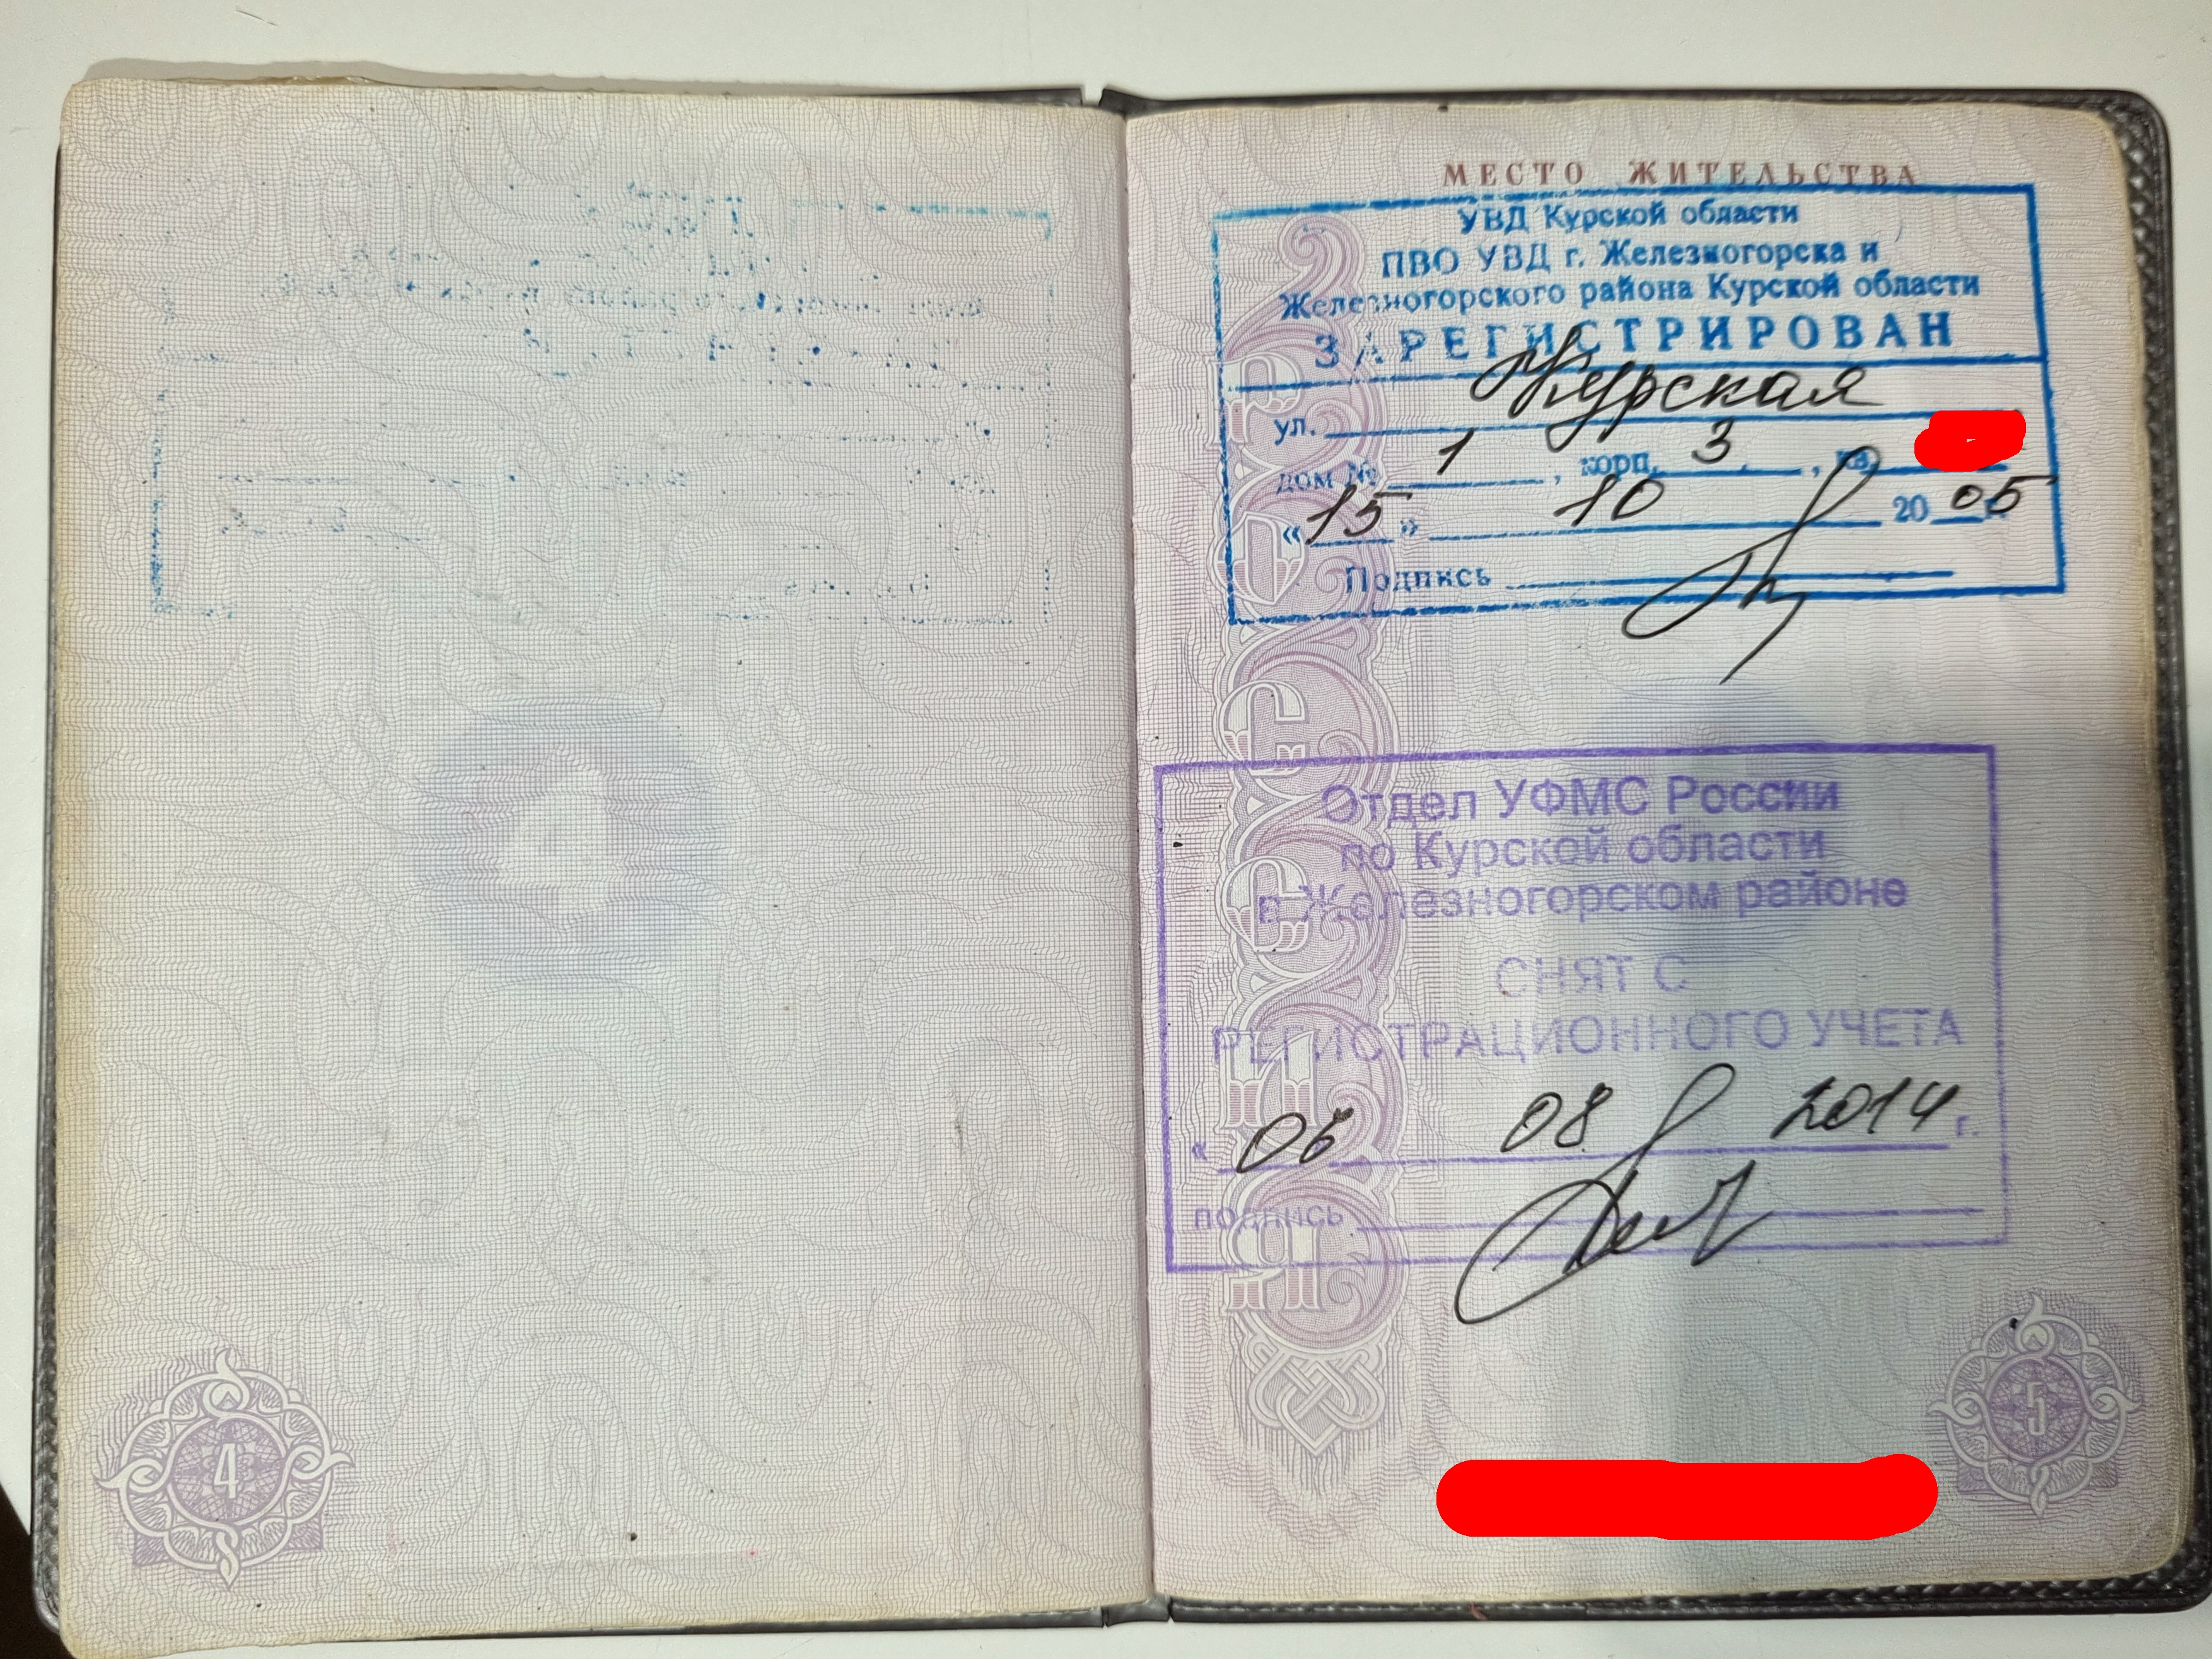 МЕСТО ЖИТЕЛЬСТВА
УВД Курской области
ПВО УВД г. Железногорска и
Железногорского района Курской области
ЗАРЕГИСТРИРОВАН
ул. Курская
дом № 1, корп. 3, кв.
«15» 10 2005
Подпись
Отдел УФМС России
по Курской области
в Железногорском районе
СНЯТ С
РЕГИСТРАЦИОННОГО УЧЕТА
« 06 08 2014 г.
подпись
РОССИЯ
4
5